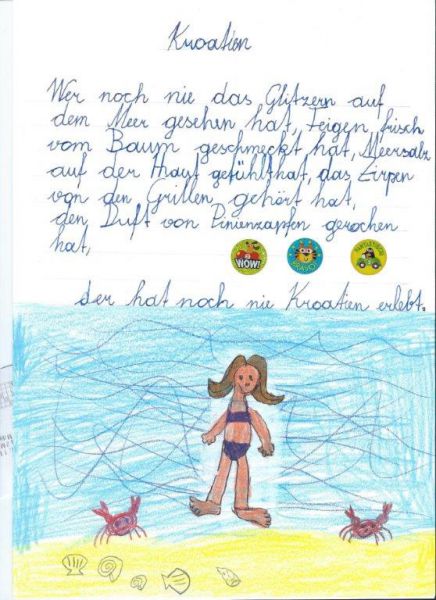 Kroatien
Wer noch nie das Glitzern auf
dem Meer gesehen hat, Feigen frisch
vom Baum geschmeckt hat, Meersalz
auf der Haut gefühlt hat, das Zirpen
von den Grillen gehört hat,
den Duft von Pinienzapfen gerochen
hat,
WOW! BRAVO!
der hat noch nie Kroatien erlebt.